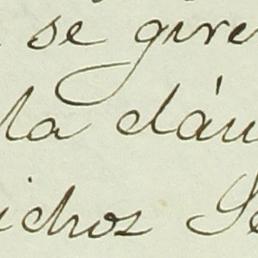 se gire
la cláu
ichos Se